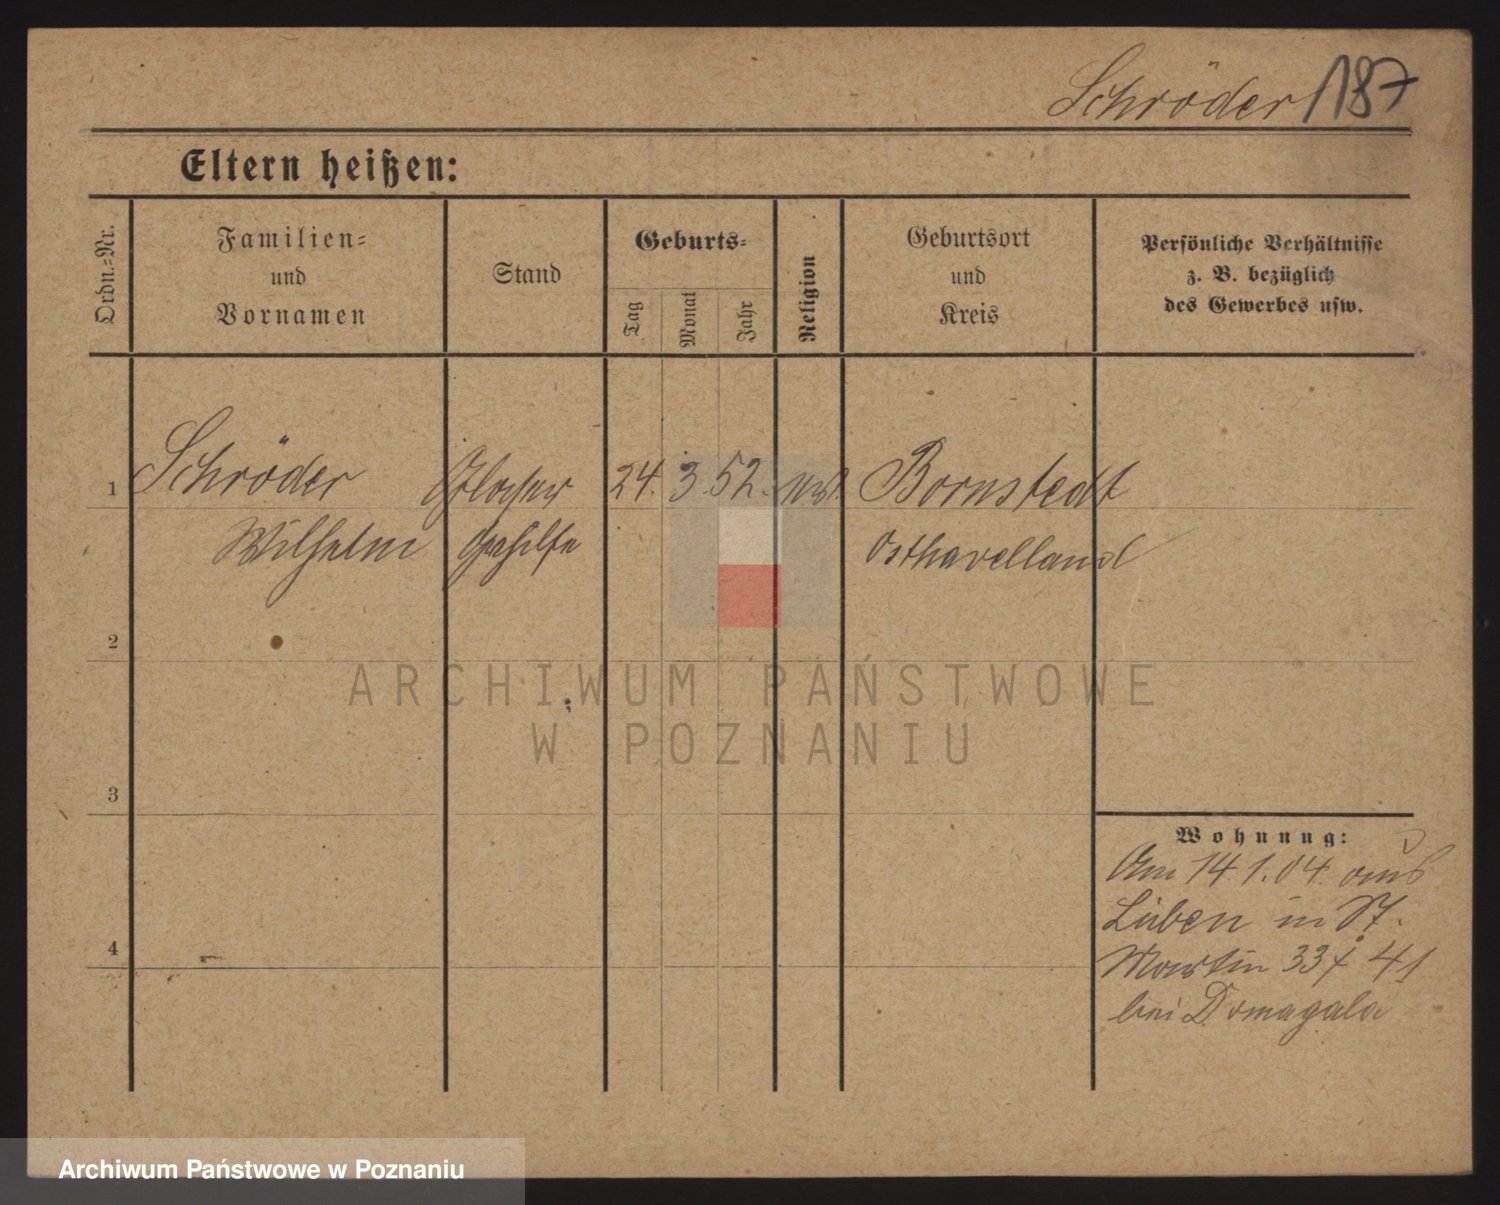 Schröder 187
Eltern heißen:
Ordn.-Nr.
Familien-
und
Vornamen
Stand
Geburts-
Tag
Monat
Jahr
Religion
Geburtsort
und
Kreis
Persönliche Verhältnisse
z. B. bezüglich
des Gewerbes usw.
1 Schröder 24. 3. 52. Bornstedt
Wilhelm Gehilfe Osthavelland
2
3
4
Wohnung:
Am 14.1.04. aus
Lüben in St.
Martin 33 41
bei Domagala
ARCHIWUM PAŃSTWOWE
W POZNANIU
Archiwum Państwowe w Poznaniu